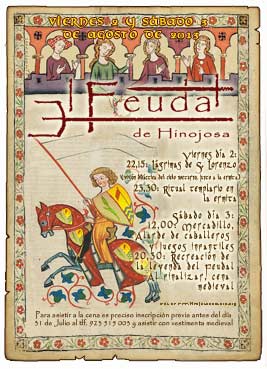 VIERNES 2 Y SÁBADO 3
DE AGOSTO DE 2013
El Feudal
de Hinojosa
Viernes día 2:
22,15: Lágrimas de S. Lorenzo
23,30: Ritual templario en
la ermita
Sábado día 3:
12,00: Mercadillo,
de caballeros
juegos infantiles
20,30: Recreación de
la leyenda del feudal
finalizar, cena
medieval
Para asistir a la cena es preciso inscripción previa antes del día
31 de Julio al tlf. 923 515 003 y asistir con vestimenta medieval